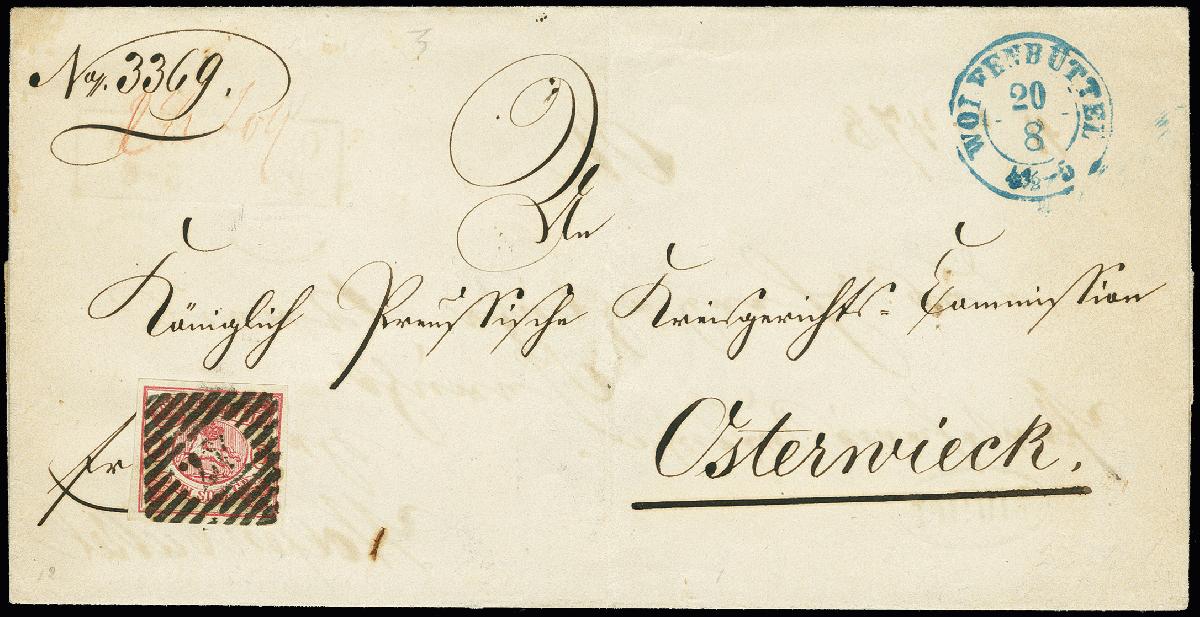 No. 3369.
3
WOLFENBÜTTEL
20
8
An
Königlich Preussische Kreisgerichts-Commission
Osterwieck.
fr